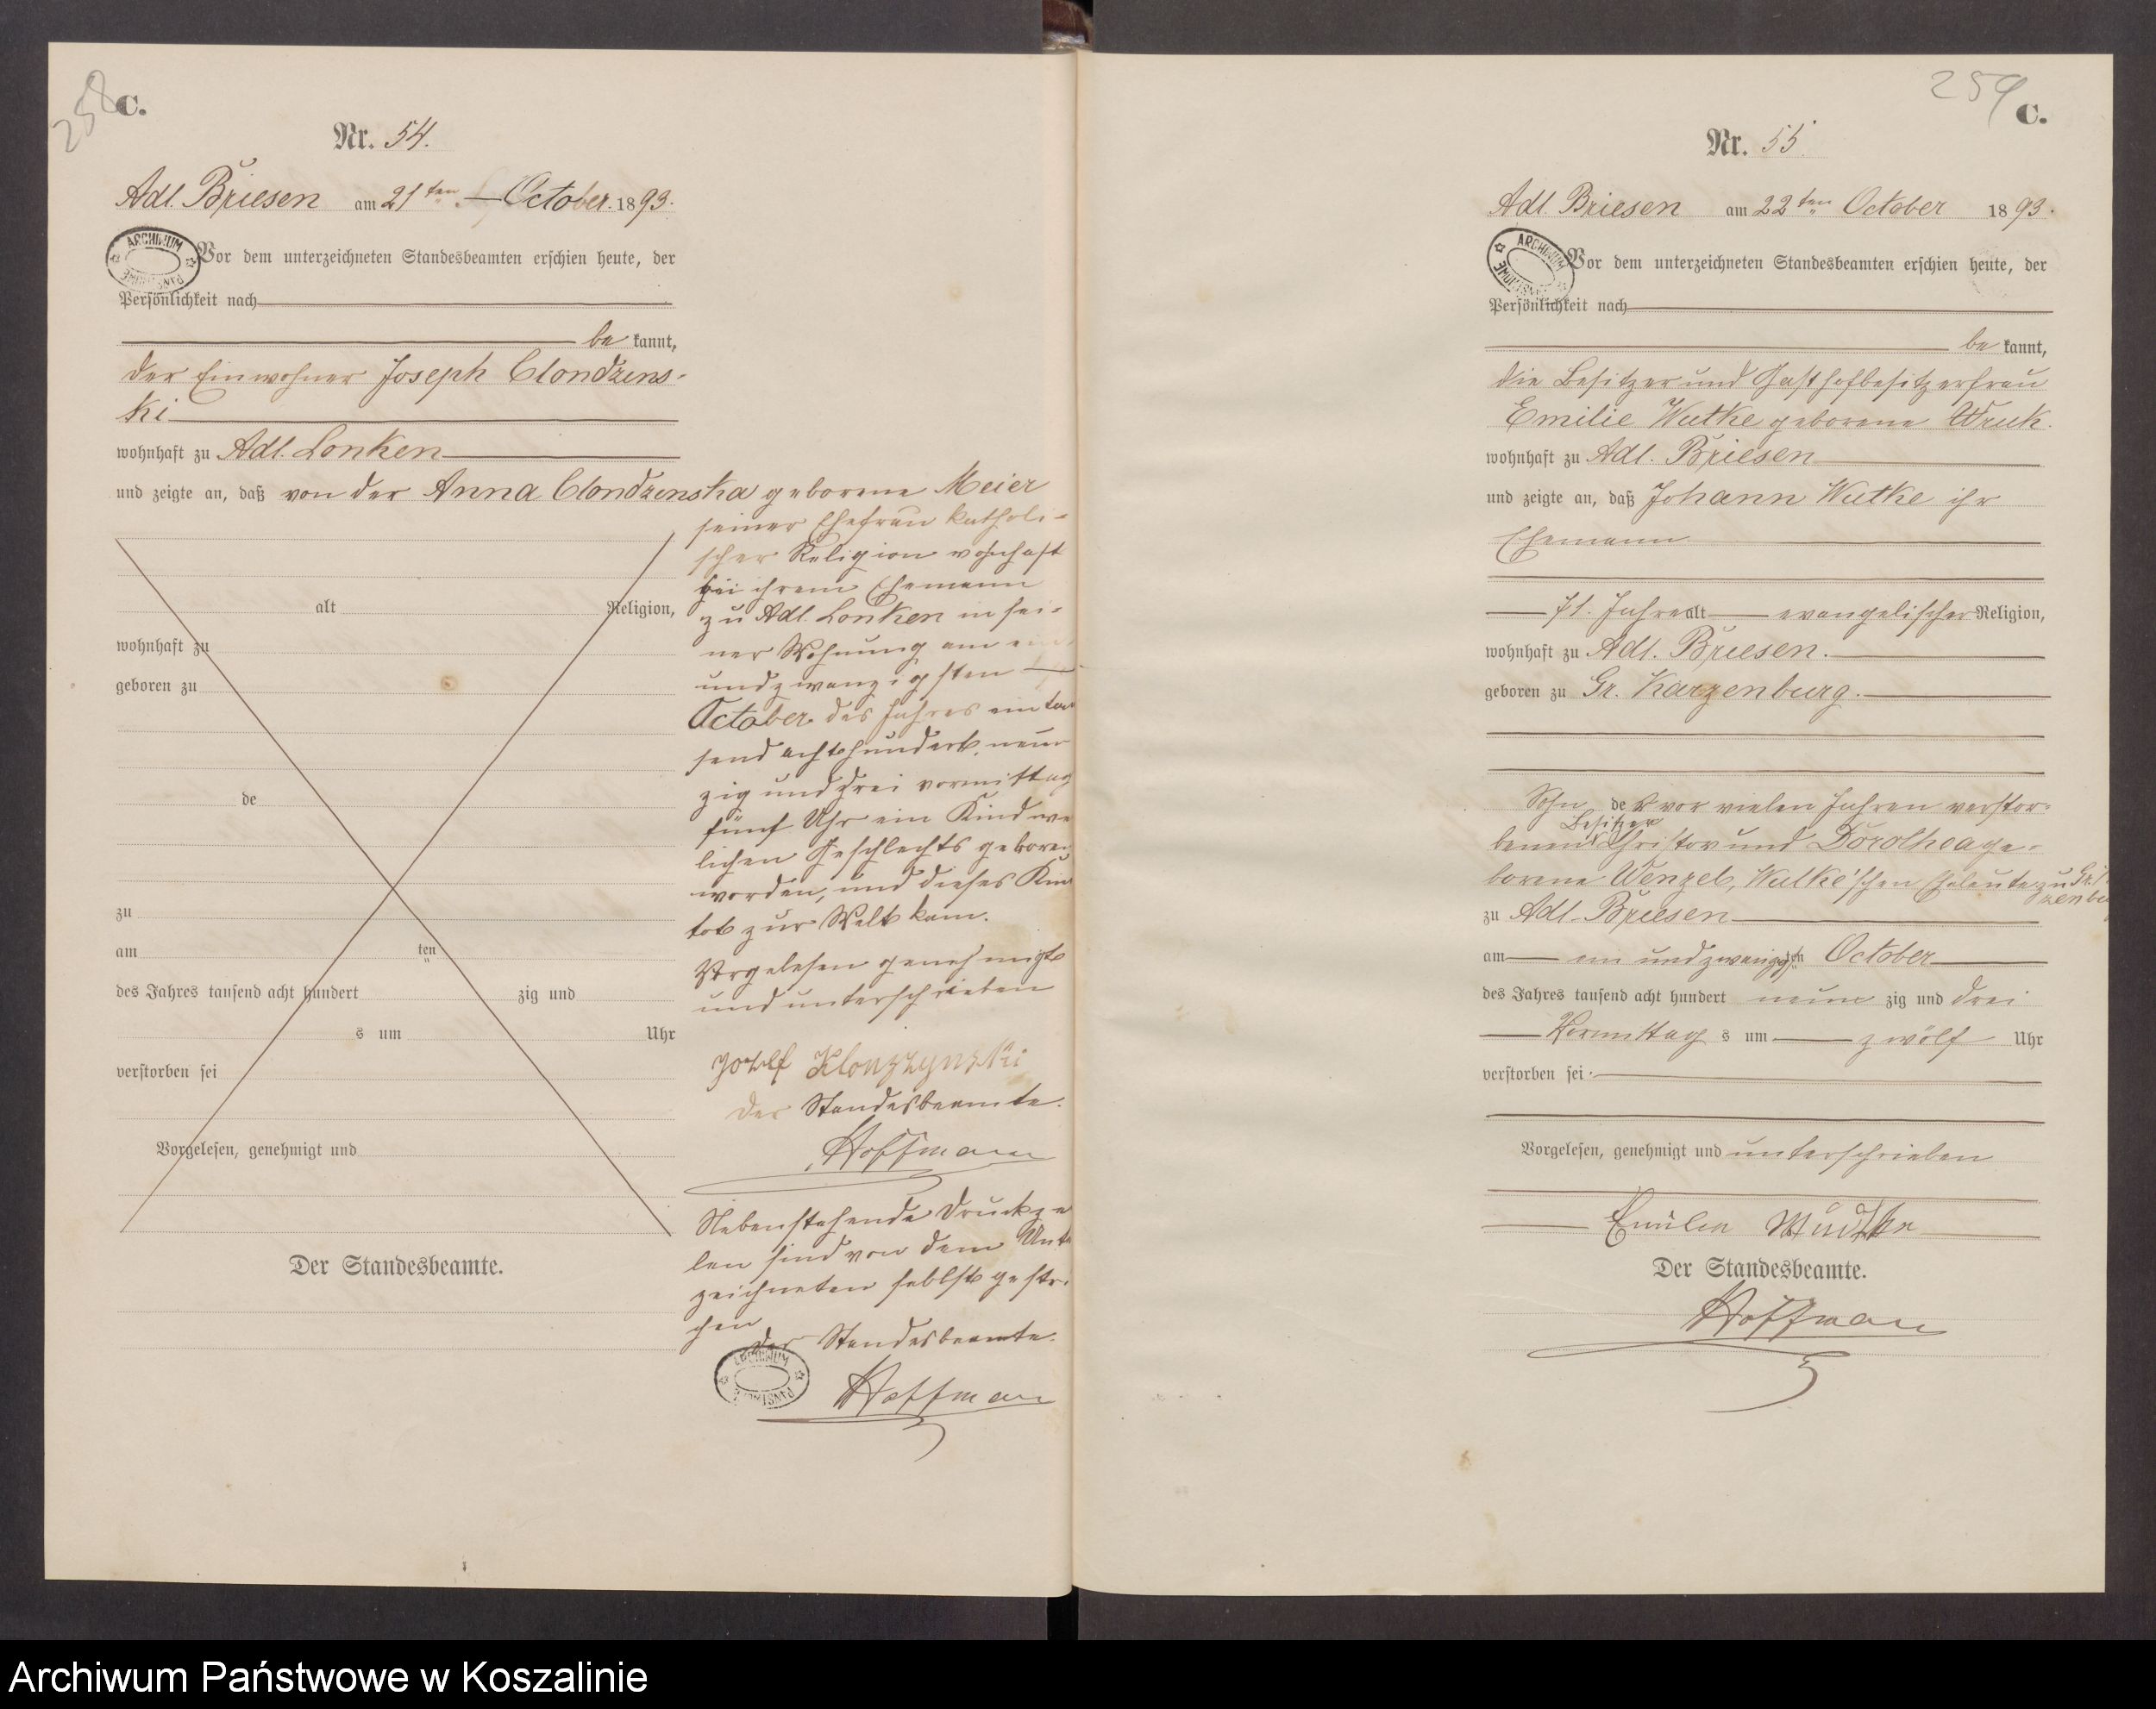 258
C.
Nr. 54.
Adl. Briesen am 21ten October 1893.
ARCHIWUM
Vor dem unterzeichneten Standesbeamten erschien heute, der
Persönlichkeit nach
be kannt,
der Einwohner Joseph Clondzens-
ki
wohnhaft zu Adl. Lonken
und zeigte an, daß von der Anna Clondzenska geborene Meier
seiner Ehefrau katholi-
scher Religion wohnhaft
bei ihrem Ehemann
zu Adl. Lonken in sei-
ner Wohnung am ein
undzwanzigsten
October des Jahres ein tau
send achthundert neun
zig und drei vormittag
fünf Uhr ein Kind we
lichen Geschlechts geboren
worden, und dieses Kin
tot zur Welt kam.
Vorgelesen genehmigt
und unterschrieben
Der Standesbeamte.
Hoffmann
Nebenstehende Druckze
len sind von dem Unte
zeichneten selbst gestri
chen
Der Standesbeamte.
ARCHIWUM
Hoffmann
alt Religion,
wohnhaft zu
geboren zu
de
zu
am ten
des Jahres tausend acht hundert zig und
s um Uhr
verstorben sei
Vorgelesen, genehmigt und
Der Standesbeamte.
259
C.
Nr. 55.
Adl. Briesen am 22ten October 1893.
ARCHIWUM
Vor dem unterzeichneten Standesbeamten erschien heute, der
Persönlichkeit nach
be kannt,
die Besitzer und Gasthofbesitzerfrau
Emilie Wutke geborene Wruk.
wohnhaft zu Adl. Briesen
und zeigte an, daß Johann Wutke ihr
Ehemann
71. Jahre alt evangelischer Religion,
wohnhaft zu Adl. Briesen.
geboren zu Gr. Karzenburg.
Sohn der vor vielen Jahren verstor-
Besitzer
benen Christov und Dorothea ge-
borene Wenzel, Wutke'schen Eheleute zu
zu Adl. Briesen
am ein und zwanzigsten October
des Jahres tausend acht hundert neun zig und drei
Vormittag s um zwölf Uhr
verstorben sei.
Vorgelesen, genehmigt und unterschrieben
Der Standesbeamte.
Hoffmann
Archiwum Państwowe w Koszalinie